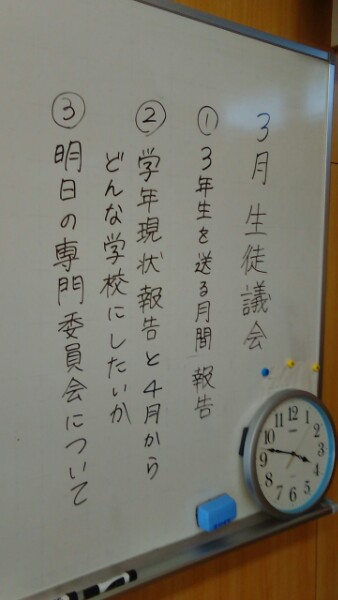 3月 生徒議会
① 3年生を送る月間 報告
② 学年現状報告と4月から
どんな学校にしたいか
③ 明日の専門委員会について
12
1
2
3
4
5
6
7
8
9
10
11